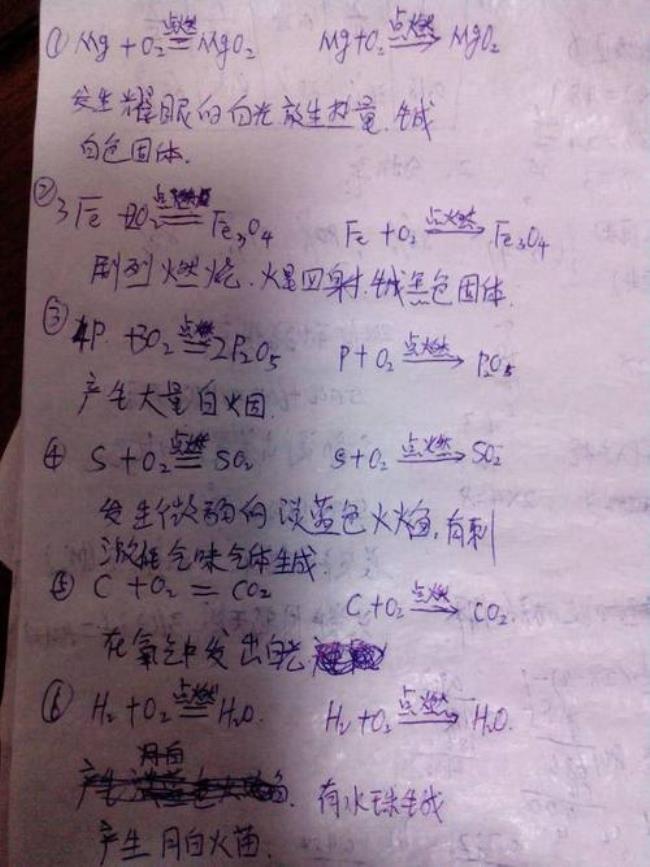 ① Mg + O₂ 点燃═ MgO₂ Mg+O₂ 点燃→ MgO₂
发生耀眼的白光放生热量.生成
白色固体.
② 3Fe + 2O₂ 点燃═ Fe₃O₄ Fe + O₂ 点燃→ Fe₃O₄
剧烈燃烧.火星四射.生成黑色固体.
③ 4P. + 5O₂ 点燃═ 2P₂O₅ P + O₂ 点燃→ P₂O₅
产生大量白火因.
④ S + O₂ 点燃═ SO₂ S+O₂ 点燃→ SO₂
发生微弱的淡蓝色火焰,有刺
激性气味气体生成
⑤ C + O₂ = CO₂ C+O₂ 点燃→ CO₂.
在氧气中发出白光
⑥ H₂ + O₂ 点燃═ H₂O. H₂+O₂ 点燃→ H₂O.
月白
有水珠生成
产生月白火苗.